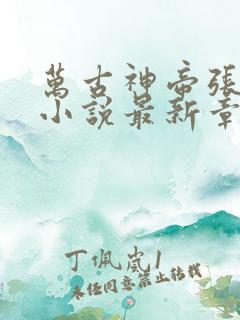 萬古神帝張
小說最新章
丁佩嵐1
未经同意禁止转载